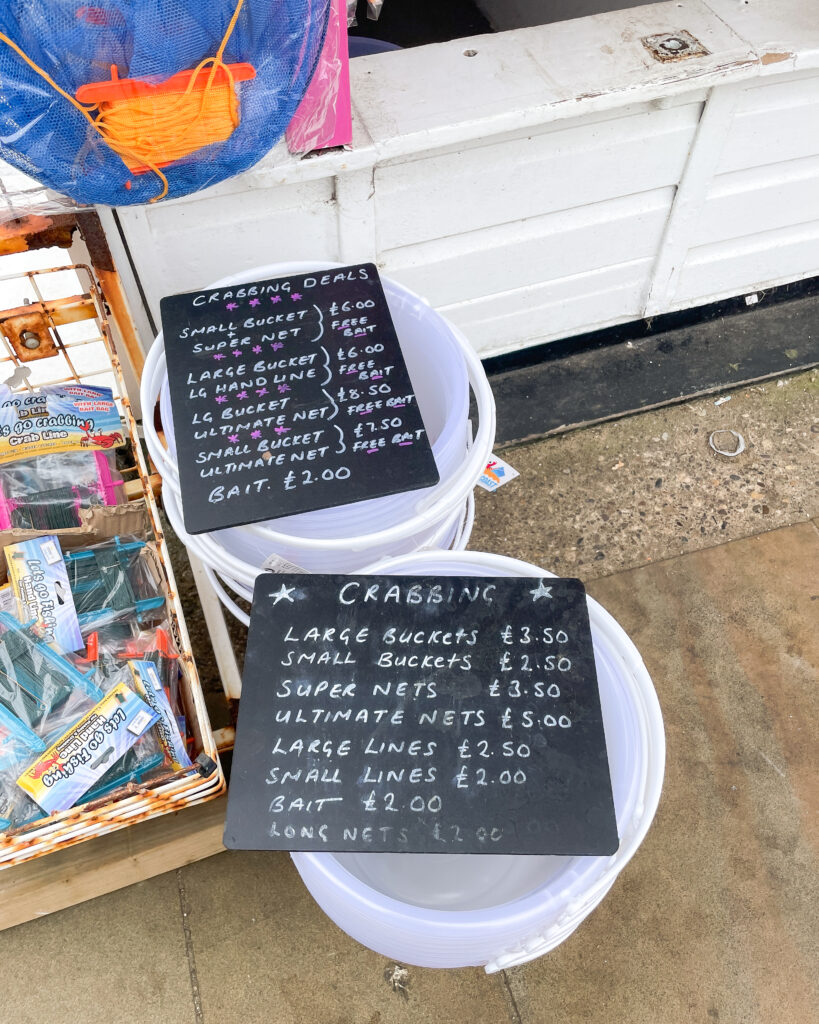 CRABBING DEALS
SMALL BUCKET
+
SUPER NET
£6.00
FREE
BAIT
LARGE BUCKET
LG HAND LINE
£6.00
FREE
BAIT
LG BUCKET
ULTIMATE NET
£8.50
FREE BAIT
SMALL BUCKET
ULTIMATE NET
£7.50
FREE BAIT
BAIT. £2.00
CRABBING
LARGE BUCKETS £3.50
SMALL BUCKETS £2.50
SUPER NETS £3.50
ULTIMATE NETS £5.00
LARGE LINES £2.50
SMALL LINES £2.00
BAIT £2.00
LONG NETS £2.00
WITH LARGE
BAIT BAG
Let's go crabbing
Crab Line
Let's go Fishing
Hand Line
Let's go Fishing
Hand Line